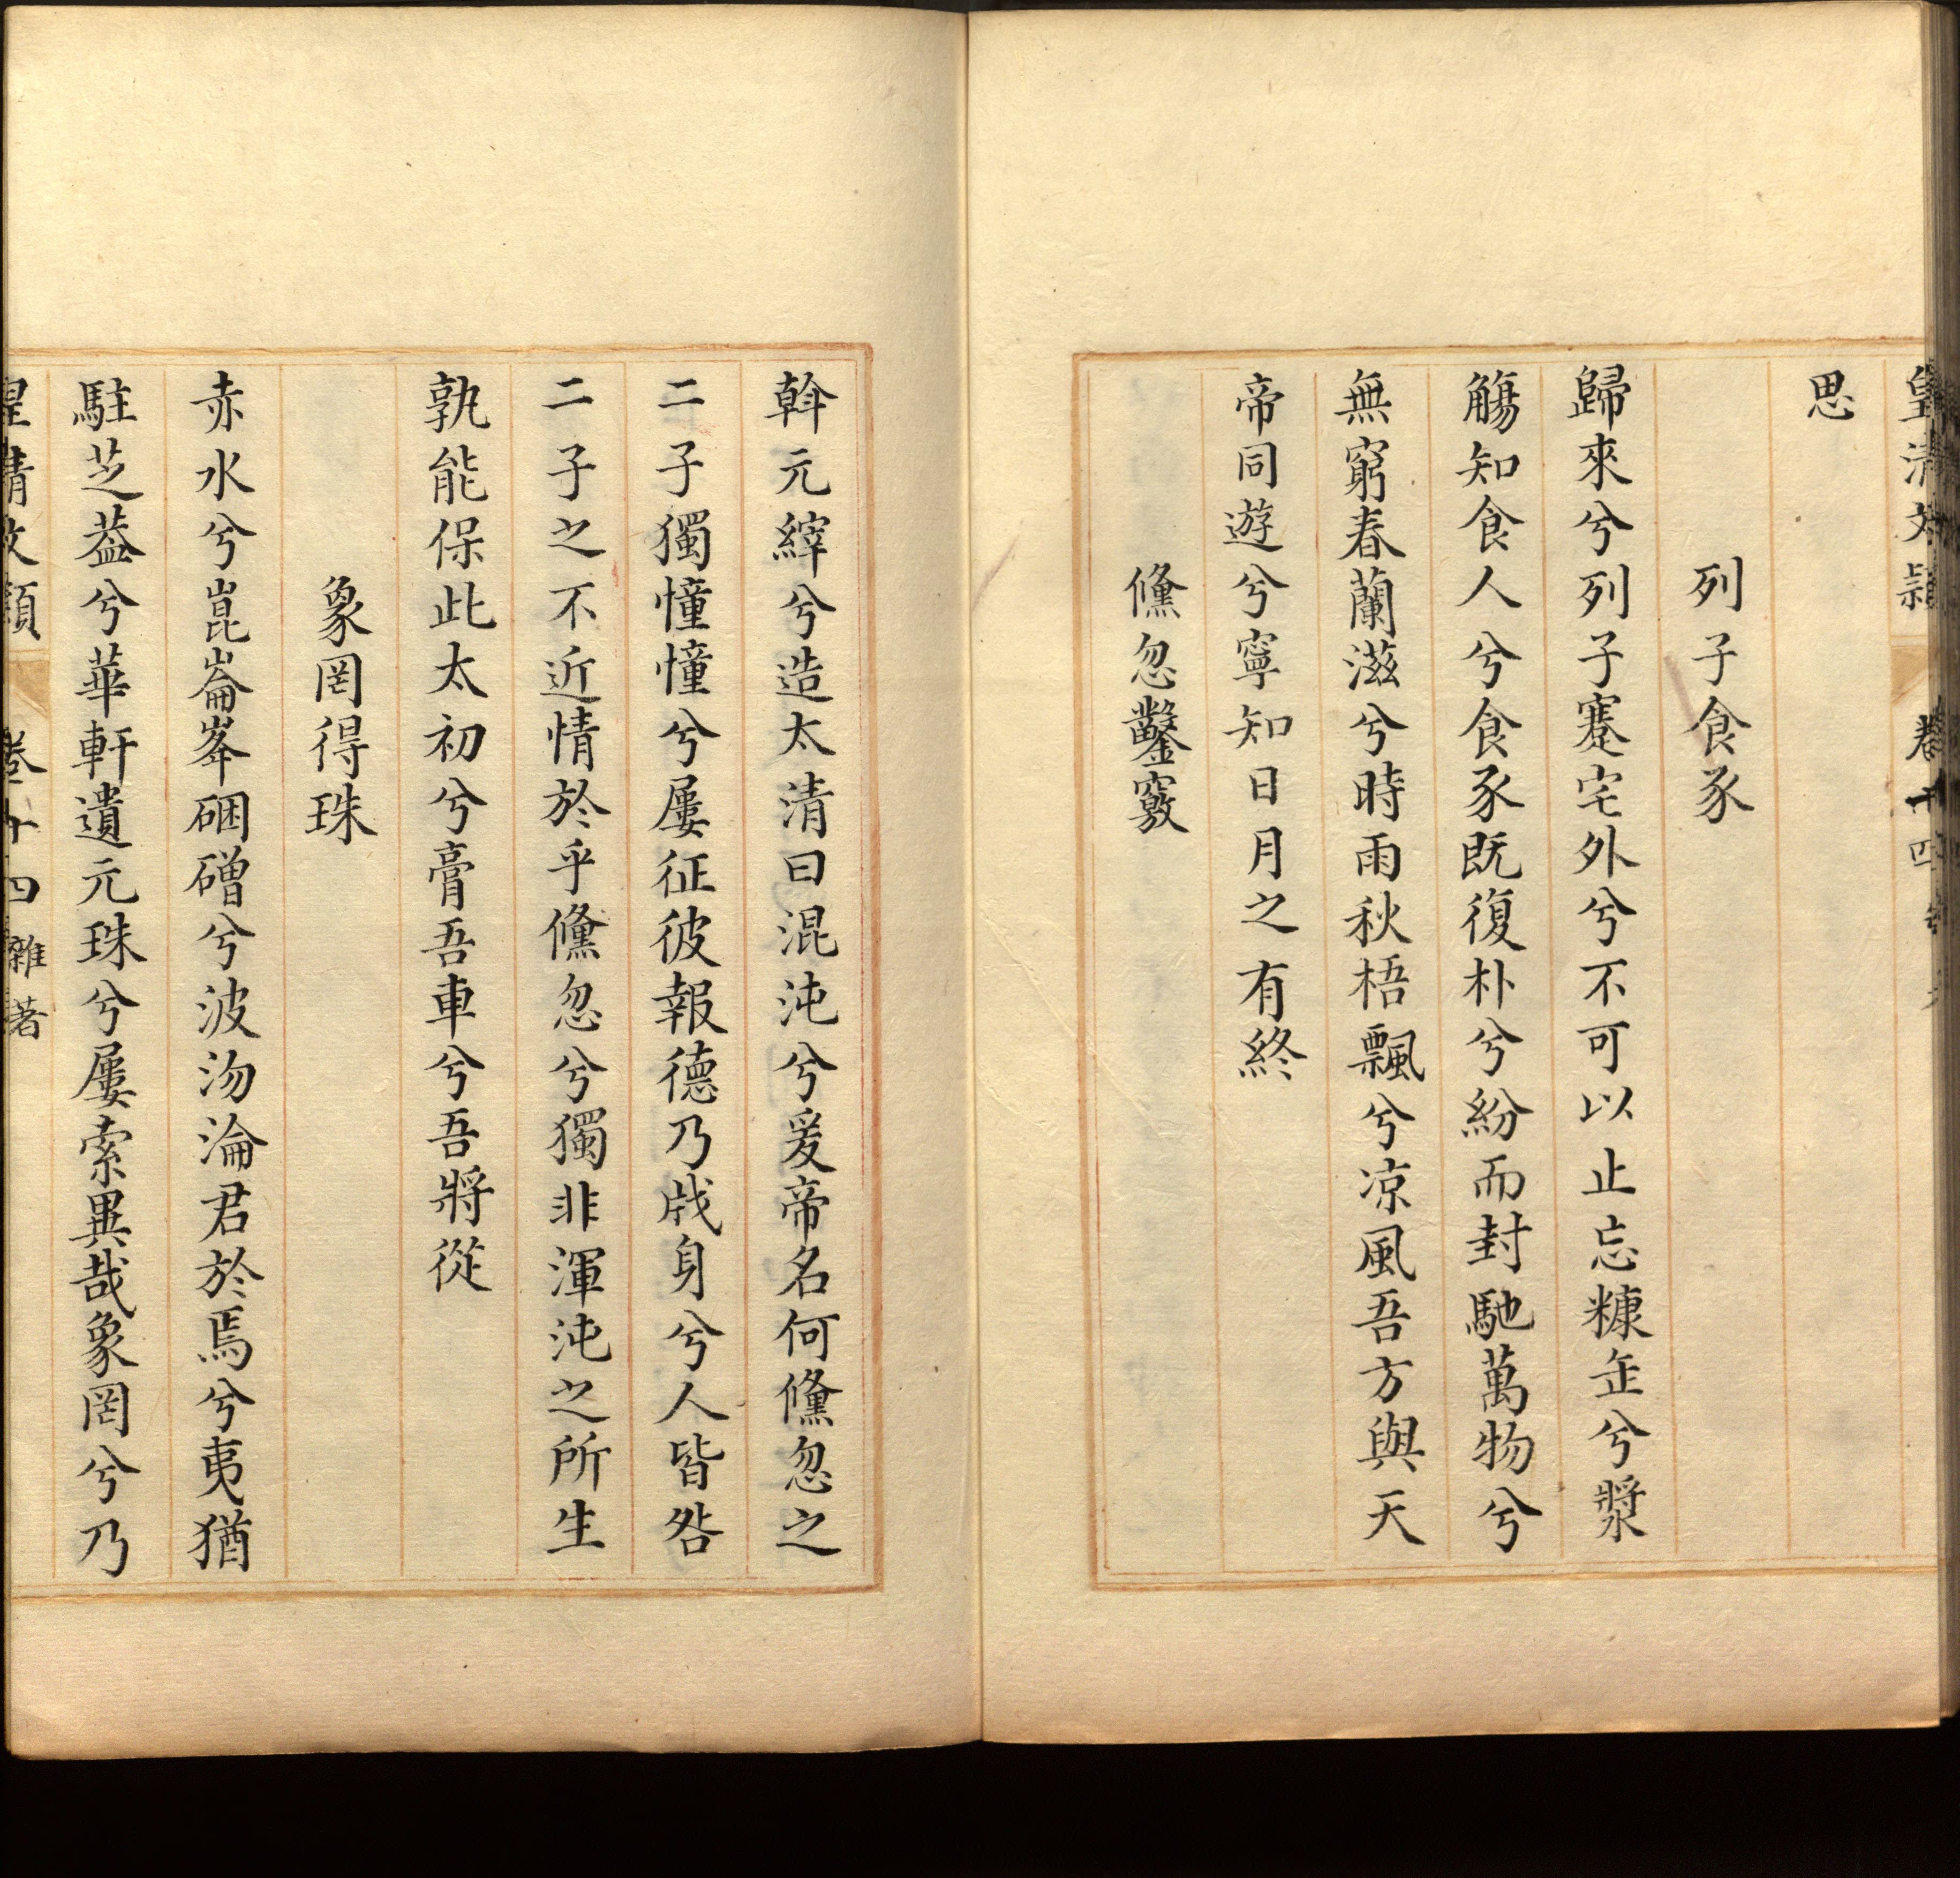 皇清文穎 卷十四
思
列子食豕
歸來兮列子蹇宅外兮不可以止忘糠缶兮漿
觴知食人兮食豕既復朴兮紛而封馳萬物兮
無窮春蘭滋兮時雨秋梧飄兮凉風吾方與天
帝同遊兮寧知日月之有終
儵忽鑿竅
斡元縡兮造太清曰混沌兮爰帝名何儵忽之
二子獨憧憧兮屢征彼報德乃戕身兮人皆咎
二子之不近情於乎儵忽兮獨非渾沌之所生
孰能保此太初兮膏吾車兮吾將從
象罔得珠
赤水兮崑崙峯硱磳兮波沕淪君於焉兮夷猶
駐芝葢兮華軒遺元珠兮屢索異哉象罔兮乃
皇清文穎 卷十四 雜著